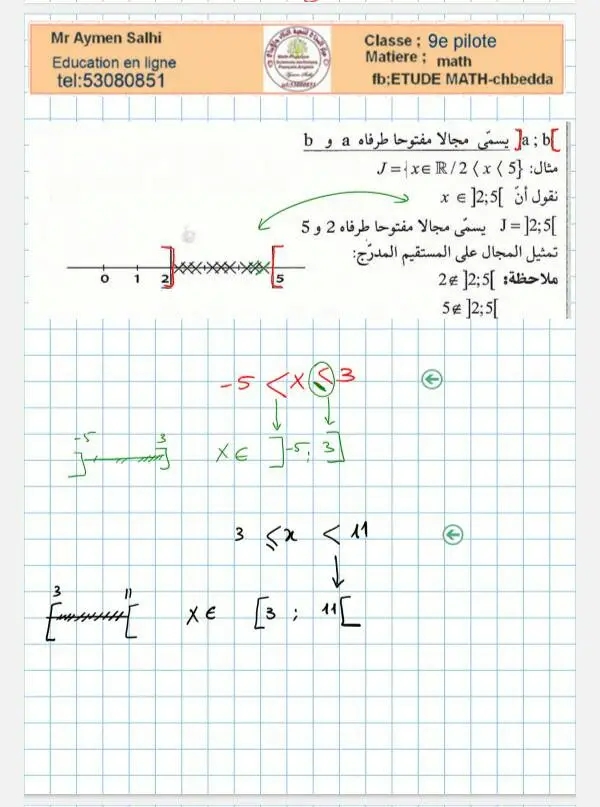 Mr Aymen Salhi
Education en ligne
tel:53080851
Classe ; 9e pilote
Matiere ; math
fb;ETUDE MATH-chbedda
]a ; b[ يسمّى مجالا مفتوحا طرفاه a و b
مثال: J = {x∈ℝ / 2 ⟨ x ⟨ 5}
نقول أنّ x ∈ ]2;5[
J = ]2;5[ يسمّى مجالا مفتوحا طرفاه 2 و 5
تمثيل المجال على المستقيم المدرّج:
0 1 2 5
ملاحظة: 2∉ ]2;5[
5∉ ]2;5[
-5 < x ≤ 3
-5 3
x ∈ ]-5; 3]
3 ≤ x < 11
3 11
x ∈ [3 ; 11[